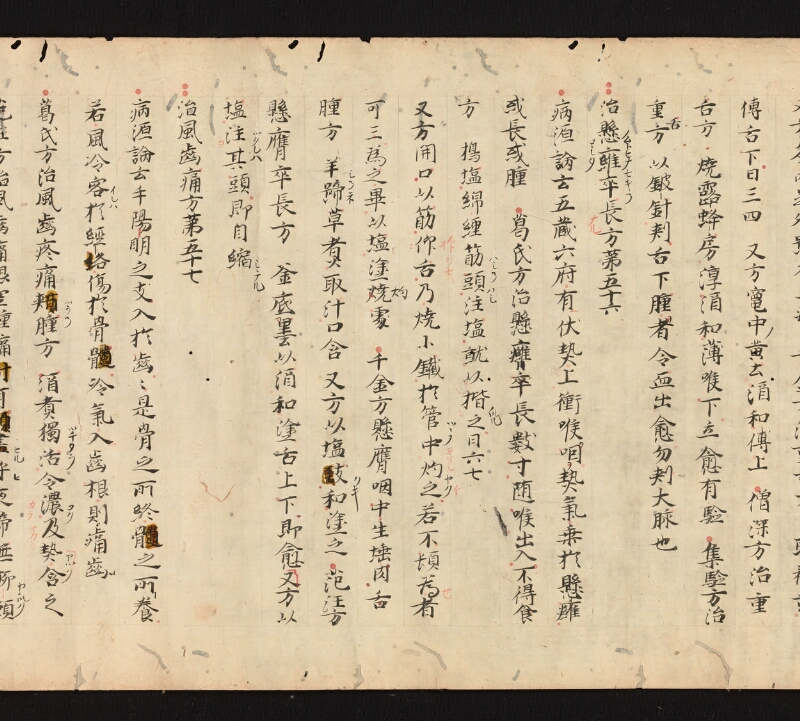 傅舌下日三四 又方竃中黄土涓和傅上 僧深方治重
舌方 燒露蜂房淳涓和薄喉下立愈有驗 集驗方治
重舌方 以鈹針刾舌下腫者令血出愈勿刾大脉也
治懸癰卒長方第五十六
病源論云五蔵六府有伏熱上衝喉咽熱氣乗於懸癰
或長或腫 葛氏方治懸癰卒長數寸随喉出入不得食
方 搗塩綿纏筋頭注塩就以揩之日六七
又方開口以筋仰舌乃燒小鐵於管中灼之若不頓為者
可三為之畢以塩塗燒處 千金方懸癰咽中生瘜肉舌
腫方 羊蹄草煮取汁口含 又方以塩豉和塗之 范汪方
懸癰卒長方 釜底墨以涓和塗舌上下即愈又方以
塩注其頭即自縮
治風齒痛方第五十七
病源論云手陽明之支入於齒〻是骨之所終髓之所養
若風冷客於經絡傷於骨髓冷氣入齒根則痛齒
葛氏方治風齒疼痛頰腫方 涓煮獨活令濃及熱含之